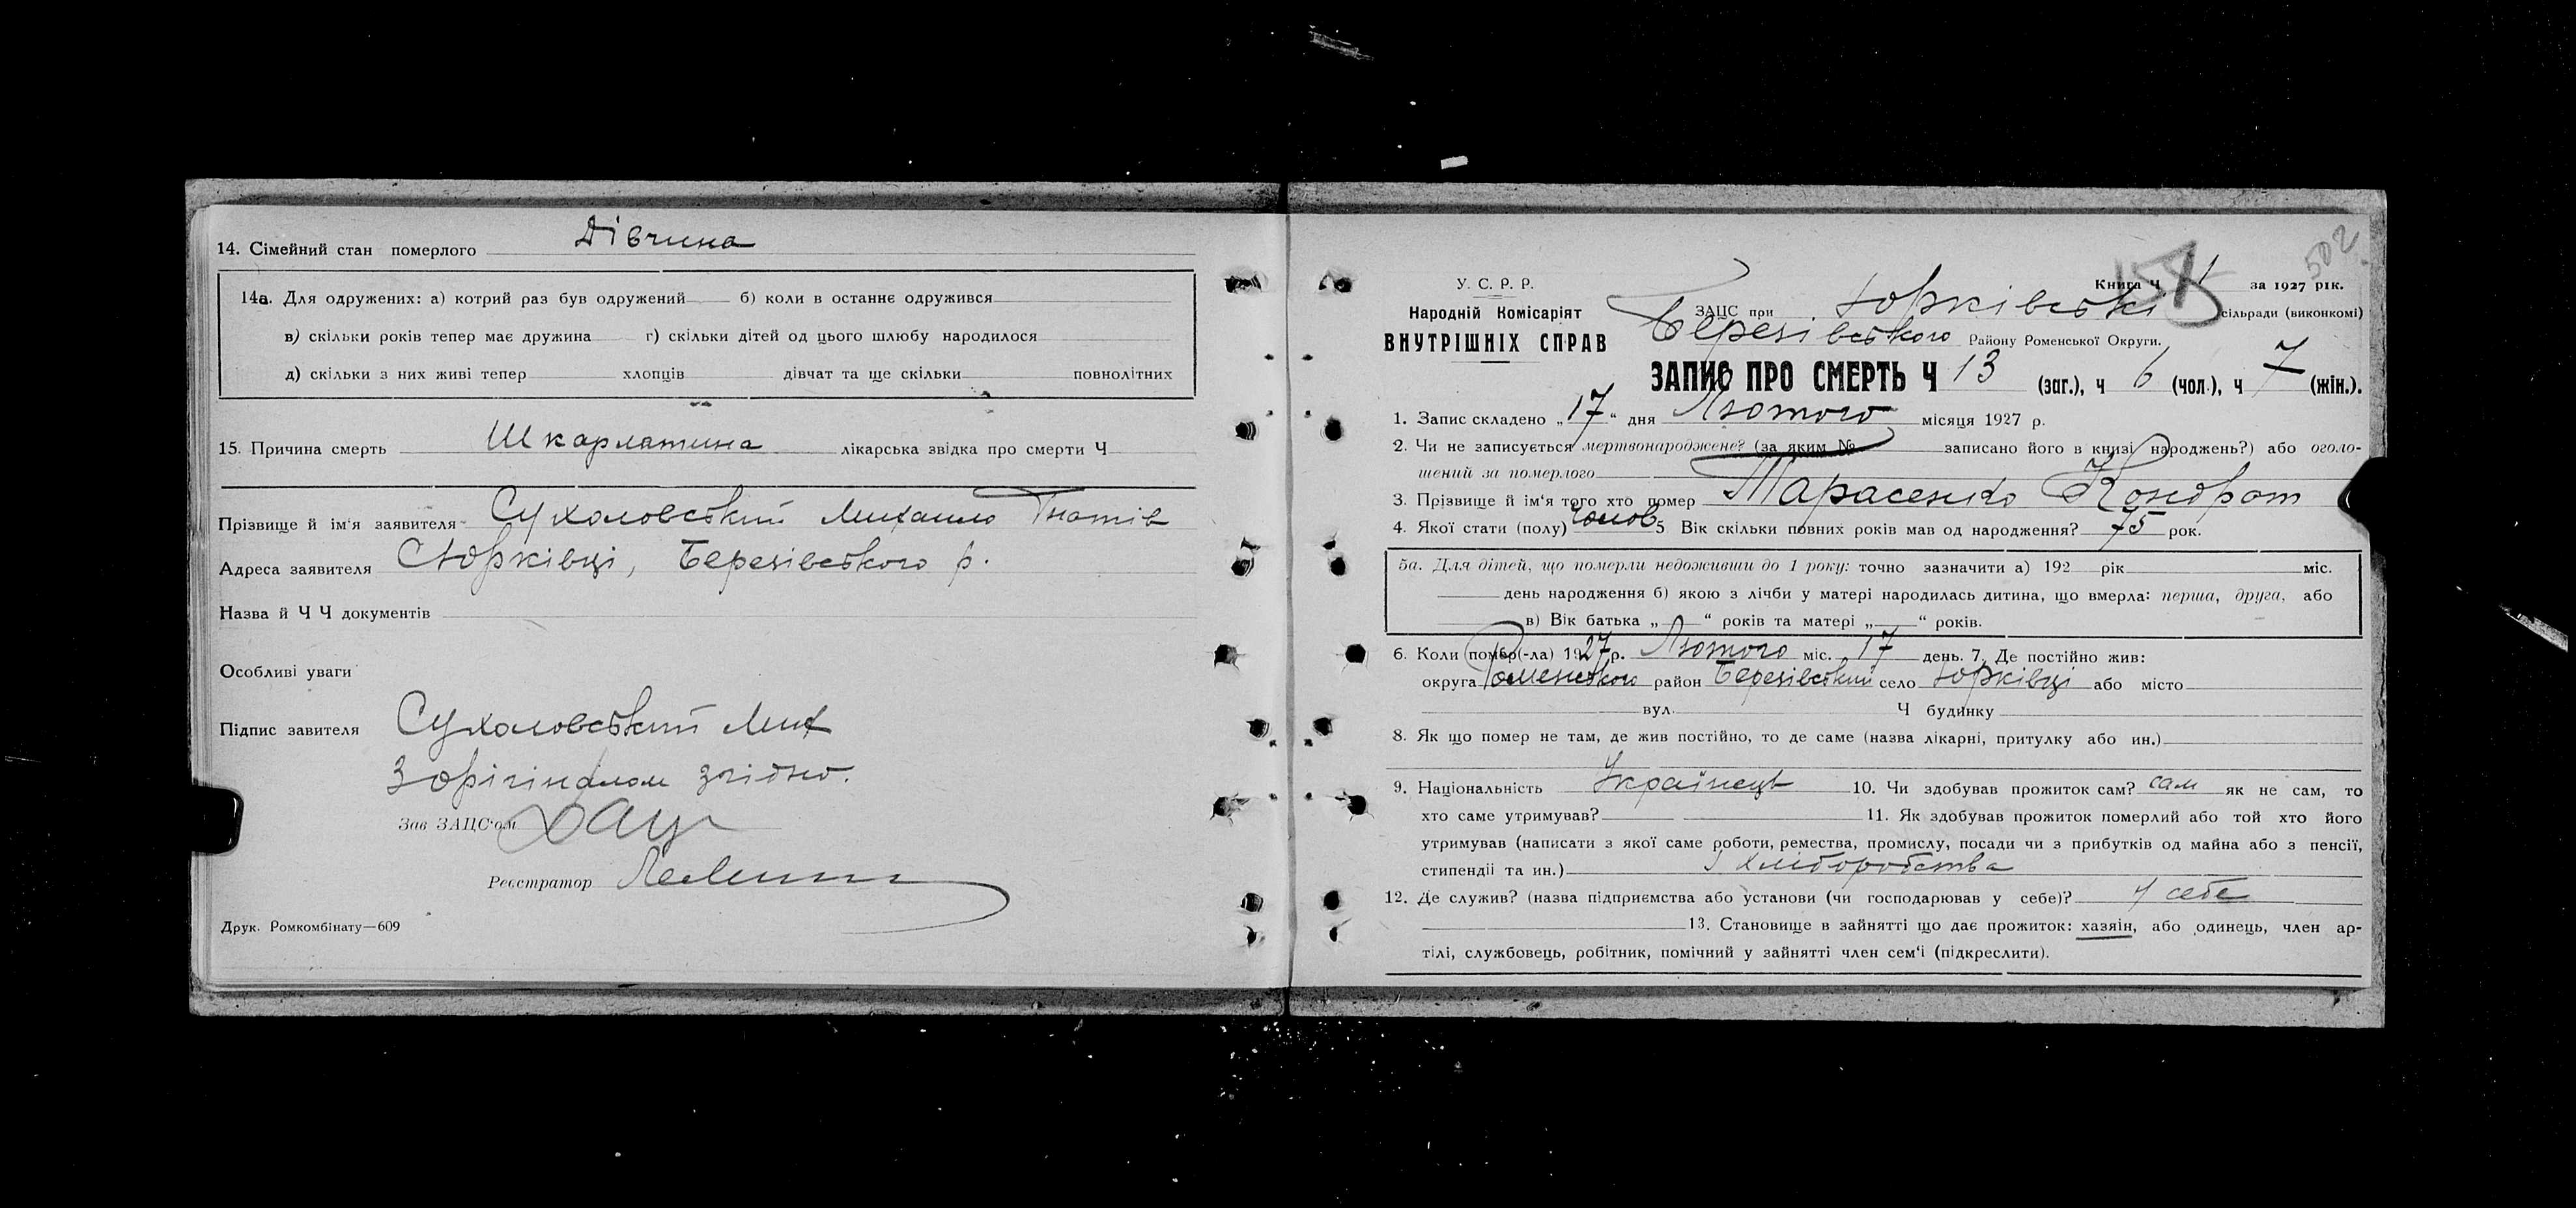 14. Сімейний стан померлого Дівчина
14а. Для одружених: а) котрий раз був одружений б) коли в останнє одружився
в) скільки років тепер має дружина г) скільки дітей од цього шлюбу народилося
д) скільки з них живі тепер хлопців дівчат та ще скільки повнолітних
15. Причина смерть Шкарлатина лікарська звідка про смерти Ч
Прізвище й ім'я заявителя Сухоловський Михайло Гнатів
Адреса заявителя с Юрківці, Березівського р.
Назва й Ч Ч документів
Особливі уваги
Підпис завителя Сухоловський Мих
З орігіналом згідно.
Зав ЗАЦС'ом
Реєстратор
Друк. Ромкомбінату—609
502
У. С. Р. Р.
Книга Ч 1 за 1927 рік.
Народній Комісаріят
ЗАЦС при Юрківські сільради (виконкомі)
ВНУТРІШНІХ СПРАВ
Березівського Району Роменської Округи.
ЗАПИС ПРО СМЕРТЬ Ч 13 (заг.), ч 6 (чол.), ч 7 (жін.).
1. Запис складено „17" дня Лютого місяця 1927 р.
2. Чи не записується мертвонароджене? (за яким № записано його в книзі народжень?) або оголо-
шений за померлого
3. Прізвище й ім'я того хто помер Тарасенко Кондрат
4. Якої стати (полу) чолов 5. Вік скільки повних років мав од народження? 75 рок.
5а. Для дітей, що померли недоживши до 1 року: точно зазначити а) 192 рік міс.
день народження б) якою з лічби у матері народилась дитина, що вмерла: перша, друга, або
в) Вік батька „ " років та матері „ " років.
6. Коли помер(-ла) 1927 р. Лютого міс. 17 день. 7. Де постійно жив:
округа Роменського район Березівський село Юрківці або місто
вул. Ч будинку
8. Як що помер не там, де жив постійно, то де саме (назва лікарні, притулку або ин.)
9. Національність Українець 10. Чи здобував прожиток сам? сам як не сам, то
хто саме утримував? 11. Як здобував прожиток померлий або той хто його
утримував (написати з якої саме роботи, ремества, промислу, посади чи з прибутків од майна або з пенсії,
стипендії та ин.) з хліборобства
12. Де служив? (назва підприємства або установи (чи господарював у себе)? у себе
13. Становище в зайнятті що дає прожиток: хазяін, або одинець, член ар-
тілі, службовець, робітник, помічний у зайнятті член сем'ї (підкреслити).